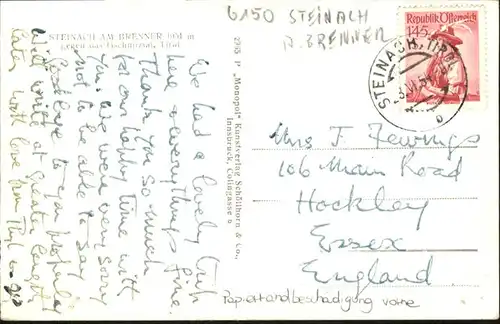 6150 STEINACH
A. BRENNER
STEINACH AM BRENNER 1051 m
gegen das Gschnitztal, Tirol
Republik Österreich
145
STEINACH, TIROL
We had a lovely trip
here & everythings fine.
Thank you so much
for our happy time with
you. We were very sorry
not to be able to say
Goodbye to you properly
Will write at greater length
later. With love from Phyl
2955 P „Monopol“ Kunstverlag Schöllhorn & Co.,
Innsbruck, Colingasse
Mrs J. Fewings
106 Main Road
Hockley
Essex
England.
Papierhandbeschädigung vorne